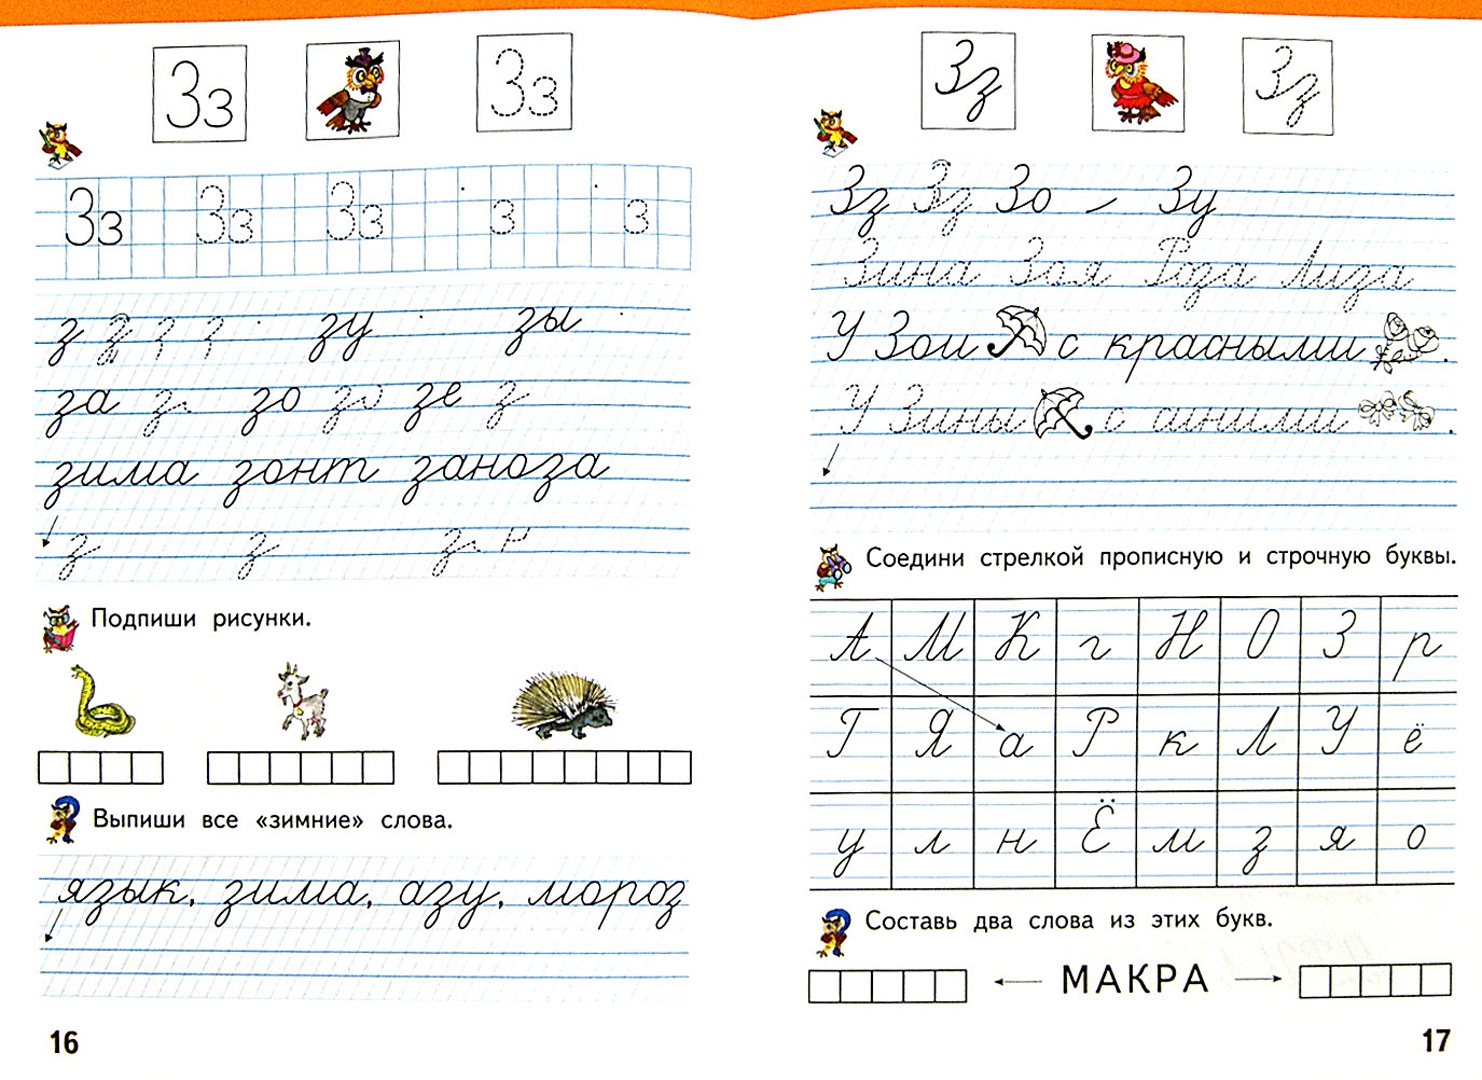 Зз Зз
Зз Зз Зз з з
з з з з зу зы
за за зо зо зе з
зима зонт заноза
з з за
Подпиши рисунки.
Выпиши все «зимние» слова.
язык, зима, азу, мороз
16
Зз Зз
Зз Зз Зо Зу
Зина Зоя Роза Лиза
У Зои с красными .
У Зины с синими .
Соедини стрелкой прописную и строчную буквы.
А М К г Н О З р
Г Я а Р к Л У ё
у л н Ё м з я о
Составь два слова из этих букв.
МАКРА
17